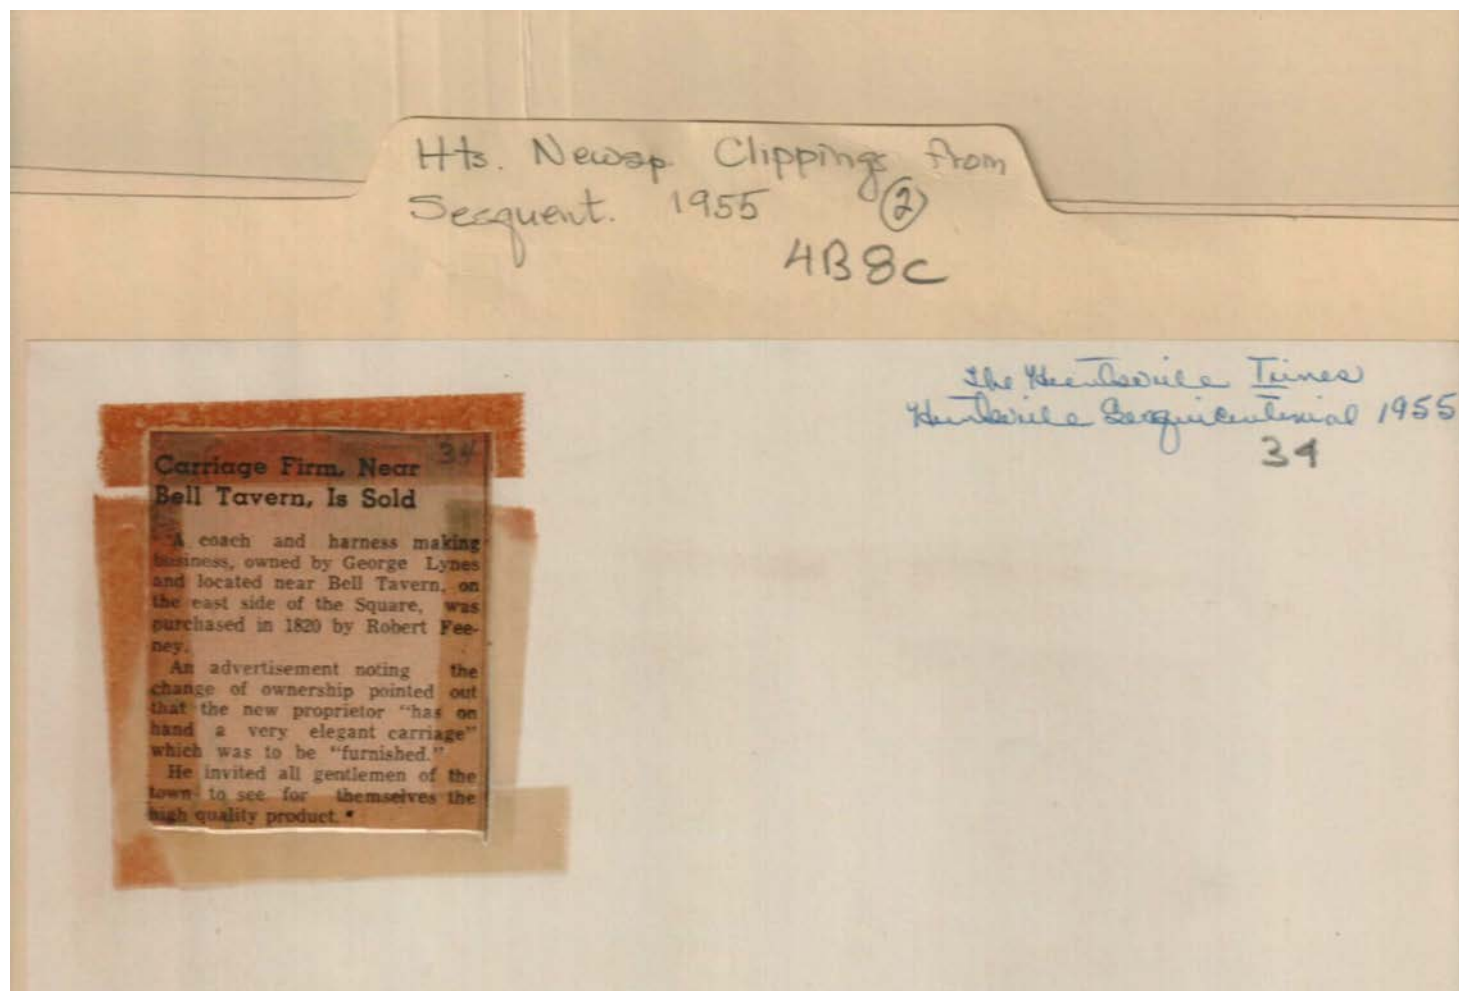 Hts. Newsp. Clippings from
Sesquent. 1955 2
4B8C
The Huntsville Times
Huntsville Sesquicentennial 1955
34
34
Carriage Firm, Near
Bell Tavern, Is Sold
A coach and harness making
business, owned by George Lynes
and located near Bell Tavern, on
the east side of the Square, was
purchased in 1820 by Robert Fee-
ney.
An advertisement noting the
change of ownership pointed out
that the new proprietor "has on
hand a very elegant carriage"
which was to be "furnished."
He invited all gentlemen of the
town to see for themselves the
high quality product.